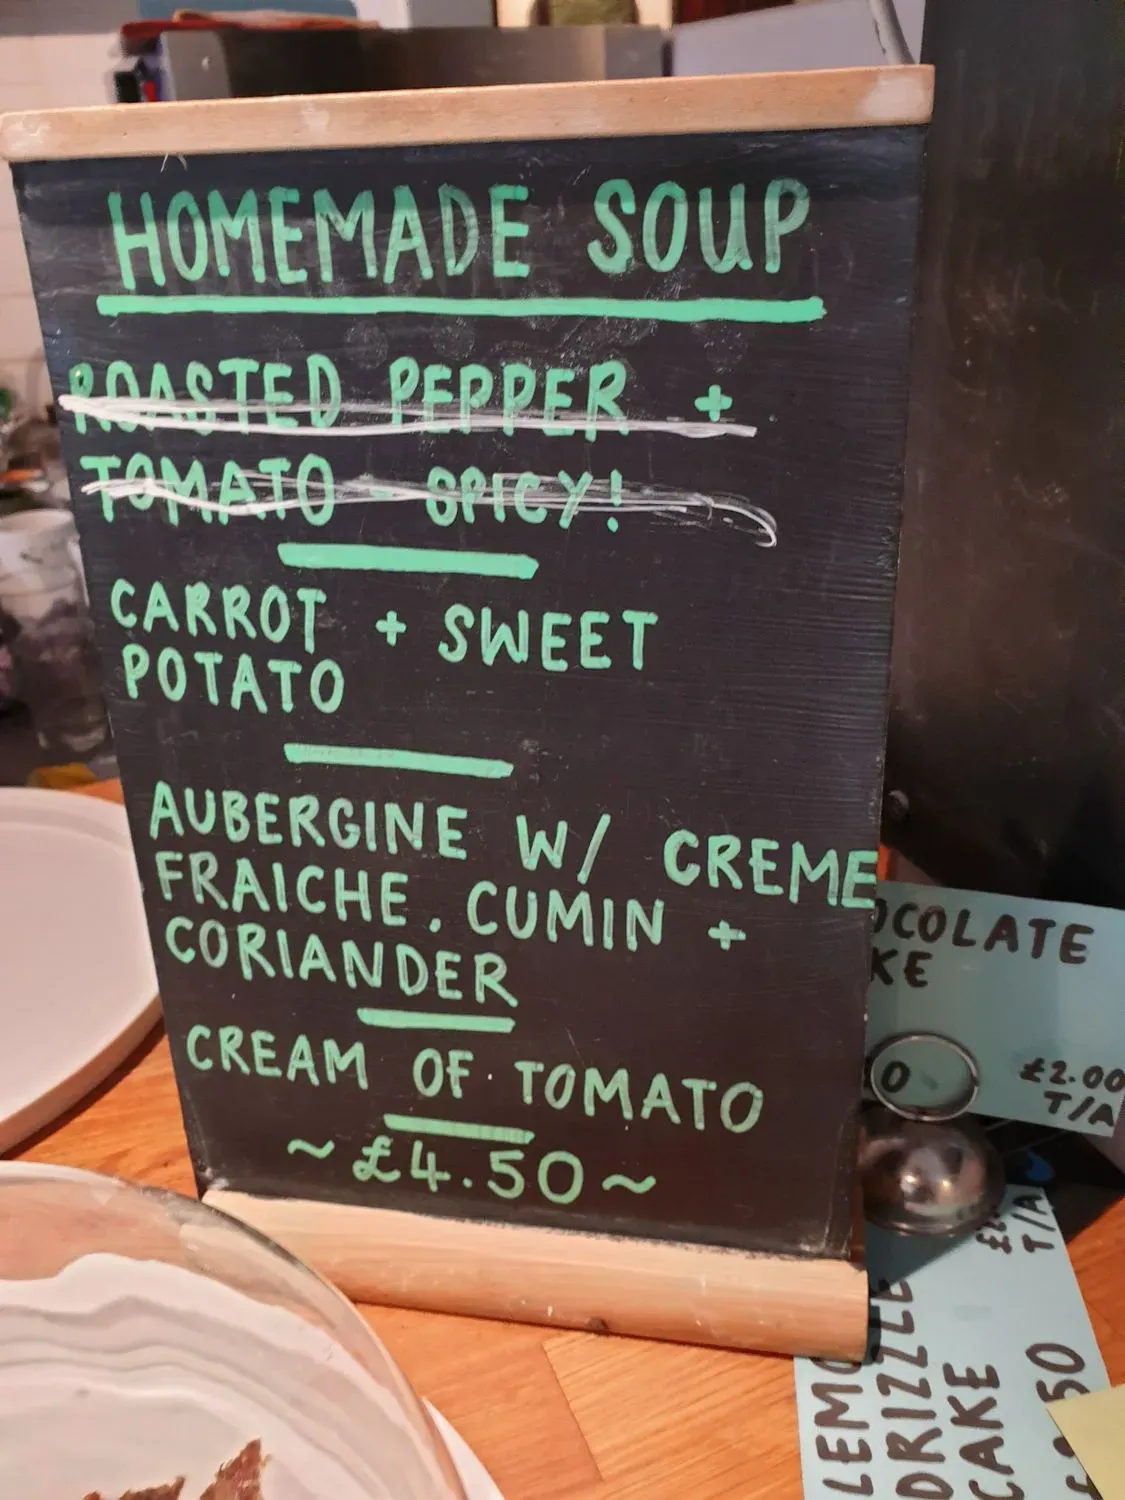 HOMEMADE SOUP
ROASTED PEPPER +
TOMATO - SPICY!
CARROT + SWEET
POTATO
AUBERGINE W/ CREME
FRAICHE, CUMIN +
CORIANDER
CREAM OF TOMATO
~ £4.50 ~
OCOLATE
KE
0
£2.00
T/A
LEMO
DRIZZLE
CAKE
50
T/A